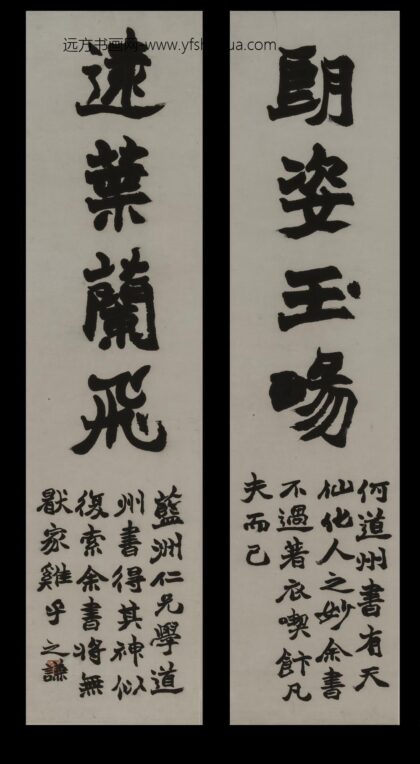 远方书画网-www.yfshuhua.com
朗姿玉暘
何道州書有天
仙化人之妙余書
不過著衣喫飰凡
夫而已
逑葉蘭飛
藍洲仁兄學道
州書得其神似
復索余書將無
猒家雞乎之謙